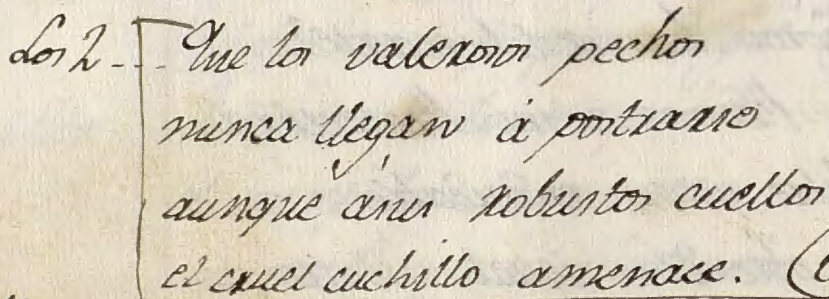 Los 2 - Que los valerosos pechos
nunca llegan á postrarse
aunque ásus robustos cuellos
el cruel cuchillo amenace.